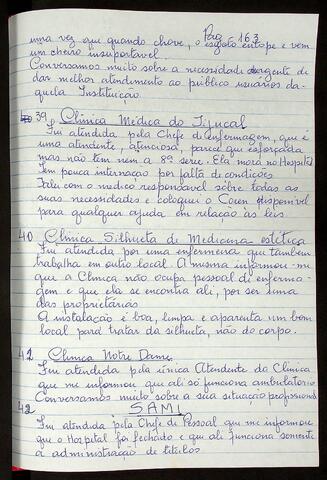 Pag 163
uma vez que quando chove, o esgoto entope e vem
um cheiro insuportavel.
Conversamos muito sobre a necessidade urgente de
dar melhor atendimento ao público usuários da-
quela Instituição
39 Clinica Médica do Tijucal
Fui atendida pela Chefe de enfermagem, que é
uma atendente, atenciosa, parece que esforçada
mas não tem nem a 8ª serie. Ela mora no Hospital
Tem pouca internação por falta de condições
Falei com o médico responsavel sobre todas as
suas necessidades e coloquei o Coren disponível
para qualquer ajuda em relação às leis
40 Clinica Silhueta de Medicina estética
Fui atendida por uma enfermeira que tambem
trabalha em outro local. A mesma informou-me
que a Clinica não ocupa pessoal de enferma-
gem e que ela se encontra ali, por ser uma
das proprietárias
A instalação é boa, limpa e aparenta um bom
local para tratar da silhueta, não do corpo.
41 Clinica Notre Dame
Fui atendida pela única Atendente da Clinica
que me informou que ali só funciona ambulatorio
Conversamos muito sobre a sua situação profissional
42 SAMI
Fui atendida pela Chefe de Pessoal que me informou
que o Hospital foi fechado e que ali funciona somente
a administração de